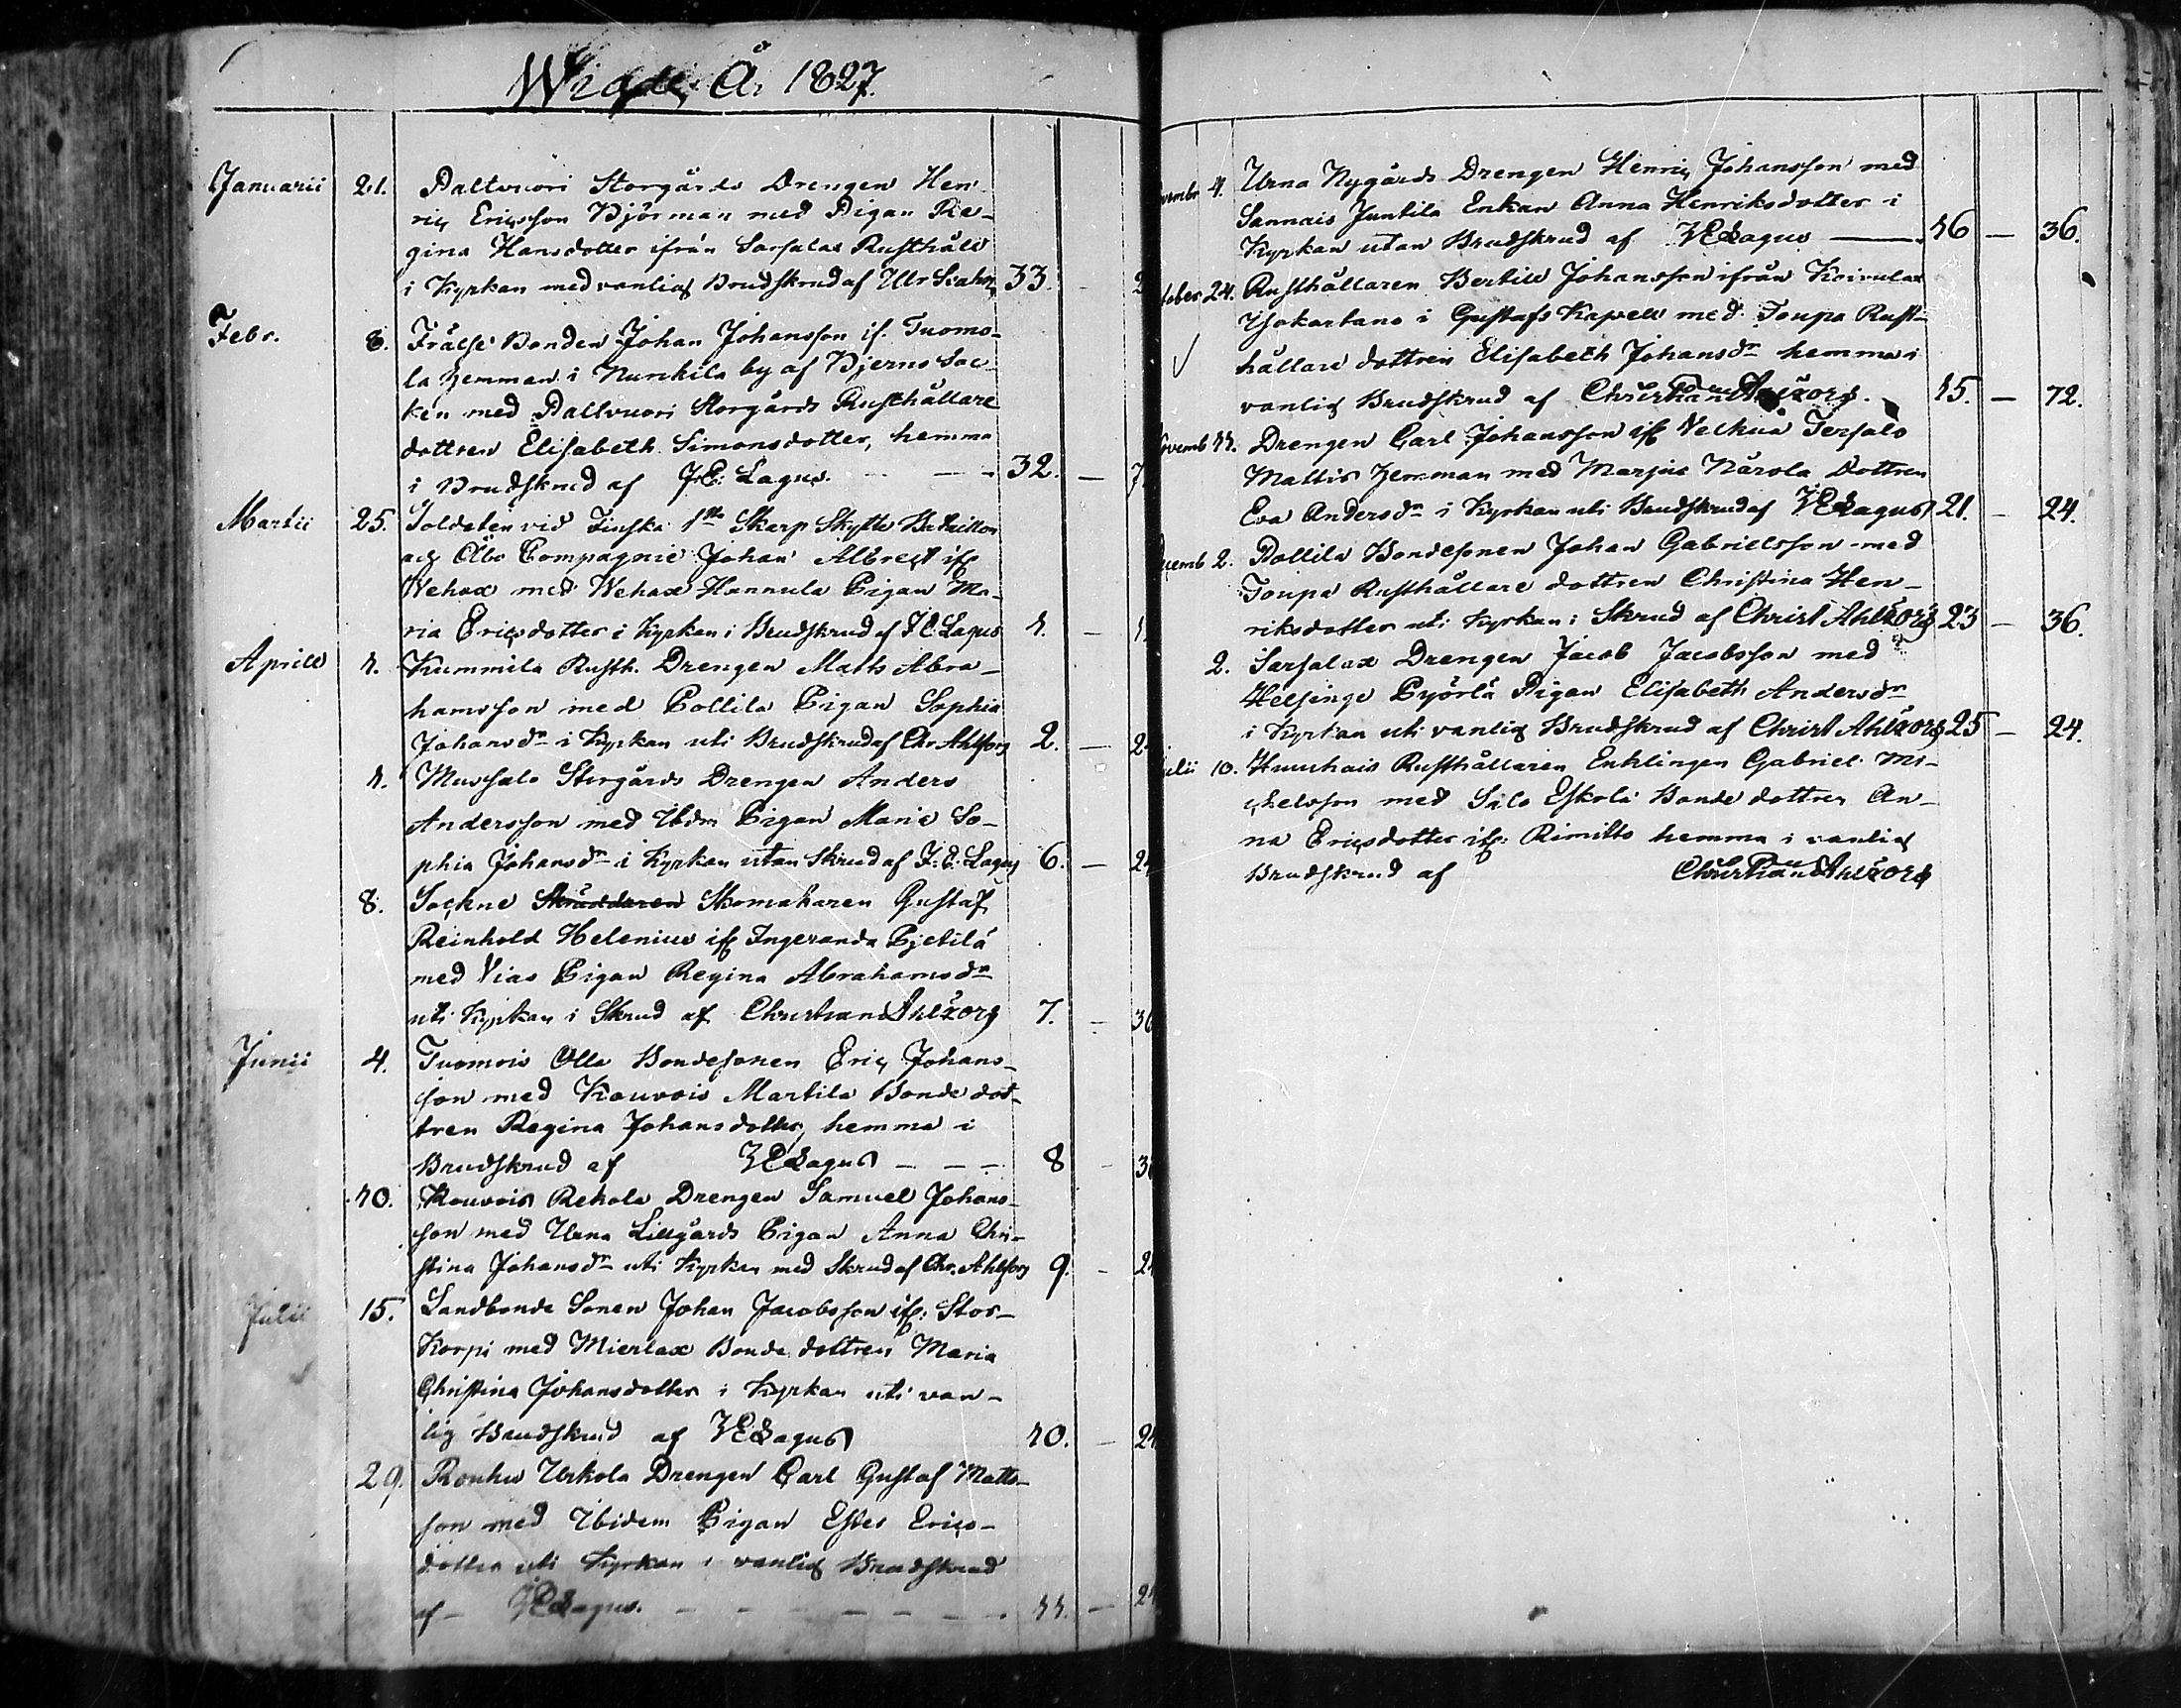 Wigde, År 1827.
Januarii 21. Paltvuori Storgårds Drengen Hen-
ric Ericsson Björman med Pigan Re-
gina Hansdotter ifrån Sarsalax Rusthåll
i Kyrkan med vanlig Brudskrud af 33. - 2
Febr. 6. Frälse Bonden Johan Johansson if. Tuomo-
la hemman i Nurkkila by af Bjerno Soc-
ken med Paltvuori Storgårds Rusthållare
dottren Elisabeth Simonsdotter, hemma
i Brudskrud af J.E. Lagus. - - 32. - 7
Martii 25. Soldaten vid Finska 1sta Skarp Skytte Bataillon
och Åbo Compagnie Johan Albrect ifr
Wehax med Wehax Hannula Pigan Ma-
ria Ericsdotter i Kyrkan i Brudskrud af J.E. Lagus 1. -
Aprill 1. Kummila Rusth. Drengen Matts Abra-
hamsson med Pollila Pigan Sophia
Johansdr i Kyrkan uti Brudskrud af Chr Ahlforg 2. - 2
1. Mussalo Storgårds Drengen Anders
Andersson med Ibdm Pigan Maria So-
phia Johansdr i Kyrkan utan Skrud af J.E. Lagus 6. - 24
8. Sockne Skräddaren Skomakaren Gustaf
Reinhold Helenius ifr Ingeranda Pjetilä
med Vias Pigan Regina Abrahamsdr
uti Kyrkan i Skrud af Christian Ahlborg 7. - 36
Junii 4. Tuomois Olla Bondesonen Eric Johans-
son med Kouvois Martila Bonde dot-
tren Regina Johansdotter, hemma i
Brudskrud af JELagus - - - 8 - 3
10. Kouvois Rekola Drengen Samuel Johans-
son med Urna Lillgårds Pigan Anna Chri-
stina Johansdr uti Kyrkan med Skrud af Chr. Ahlforg 9. - 24
Julii 15. Landbonde Sonen Johan Jacobsson ifr: Stor-
Korpi med Mierlax Bonde dottren Maria
Christina Johansdotter i Kyrkan uti van-
lig Brudskrud af JELagus 10. - 24
29. Rouhu Urkola Drengen Carl Gustaf Matts-
son med Ibidem Pigan Ester Erics-
dotter uti Kyrkan i vanlig Brudskrud
af - JELagus. - - - - - - 11. - 24
vembr 4. Urna Nygårds Drengen Henric Johansson med
Sannais Juntila Enkan Anna Henriksdotter i
Kyrkan utan Brudskrud af JELagus 16 - 36.
tober 24. Rusthållaren Bertill Johansson ifrån Koivulax
Isokartano i Gustafs Kapell med Toupa Rust-
hållare dottren Elisabeth Johansdr hemma i
vanlig Brudskrud af Christian Ahlborg. 15. - 72.
ovemb 11. Drengen Carl Johansson ifr Velkua Tersalo
Mattis hemman med Marjus Närola Dottren
Eva Andersdr i Kyrkan uti Brudskrud af JELagus 21. - 24.
ecemb 2. Pollila Bondesonen Johan Gabrielsson med
Toupa Rusthållare dottren Christina Hen-
riksdotter uti Kyrkan i Skrud af Christ Ahlborg 23 - 36.
2. Sarsalax Drengen Jacob Jacobsson med
Helsinge Pyörlä Pigan Elisabeth Andersdr
i Kyrkan uti vanlig Brudskrud af Christ Ahlborg 25 - 24.
ulii 10. Huuhais Rusthållaren Enklingen Gabriel Mi-
chelsson med Salo Eskola Bonde dottren An-
na Ericsdotter ifr: Rimitto hemma i vanlig
Brudskrud af Christian Ahlborg